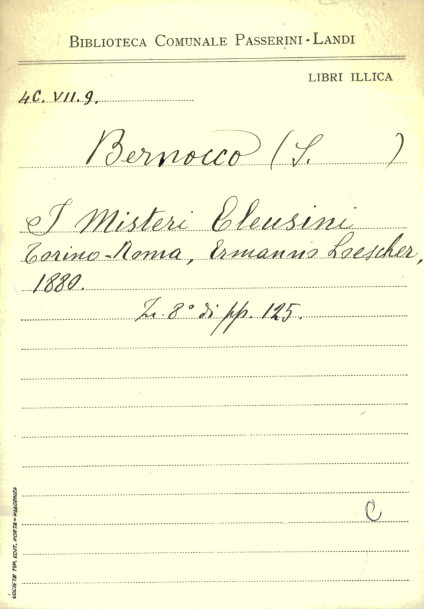 BIBLIOTECA COMUNALE PASSERINI-LANDI
LIBRI ILLICA
4C. VII. 9.
Bernocco (S. )
I Misteri Eleusini
Torino-Roma, Ermanno Loescher,
1880.
In 8° di pp. 125.
C
SOCIETÀ TIP. EDIT. PORTA - PIACENZA